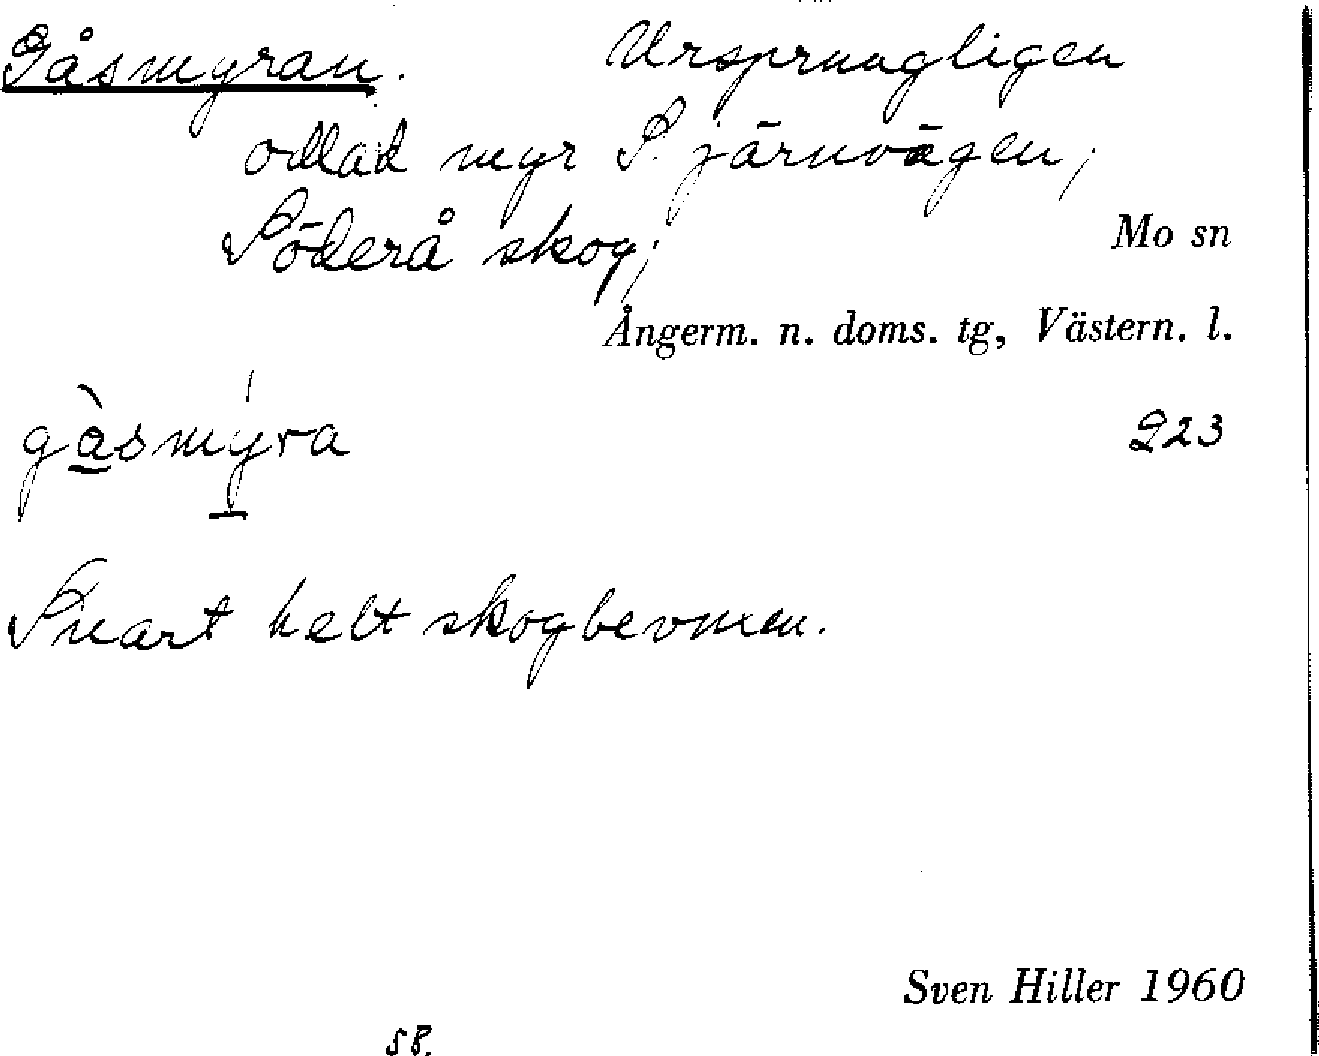 Gåsmyran. Ursprungligen
odlad myr S. järnvägen,
Söderå skog;
Mo sn
Ångerm. n. doms. tg, Västern. l.
gàsmýra 223
Snart helt skogbevuxen.
Sven Hiller 1960
58.